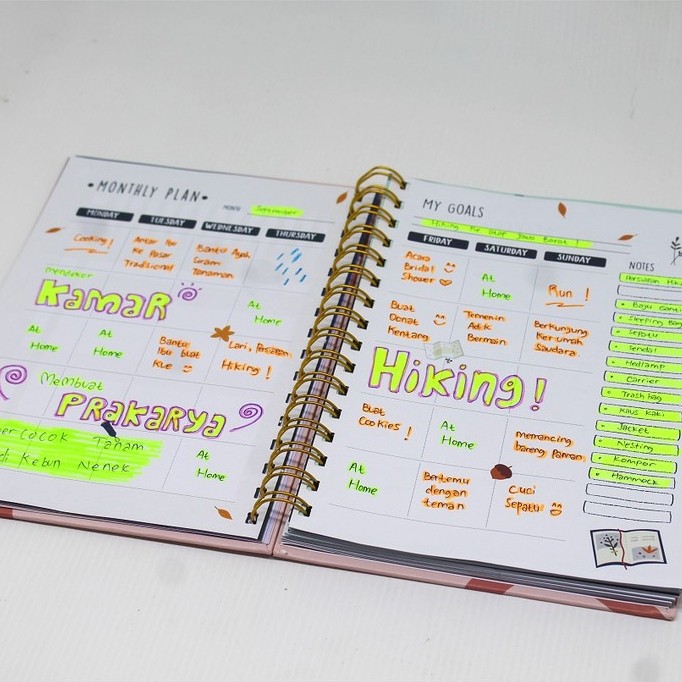 •MONTHLY PLAN•
MONTH September
MONDAY TUESDAY WEDNESDAY THURSDAY
Cooking!
Antar Ibu
Ke Pasar
Tradisional
Bantu Ayah
Siram
Tanaman
KAMAR
At
Home
At
Home
At
Home
Bantu
Ibu buat
Kue
Lari, Persiapan
Hiking!
Membuat
PRAKARYA
Tanam
di Kebun Nenek
At
Home
MY GOALS
Hiking Ke Jawa Barat!
FRIDAY SATURDAY SUNDAY
Acara
Bridal
Shower
At
Home
Run!
Buat
Donat
Kentang
Temenin
Adik
Bermain
Berkunjung
Ke rumah
Saudara
Hiking!
Buat
Cookies!
At
Home
memancing
bareng paman
At
Home
Bertemu
dengan
teman
Cuci
Sepatu
NOTES
Persiapan
• Baju
• Sleeping Bag
• Sepatu
• Sendal
• Headlamp
• Carrier
• Trash bag
• Kaus Kaki
• Jacket
• Nesting
• Kompor
• Hammock